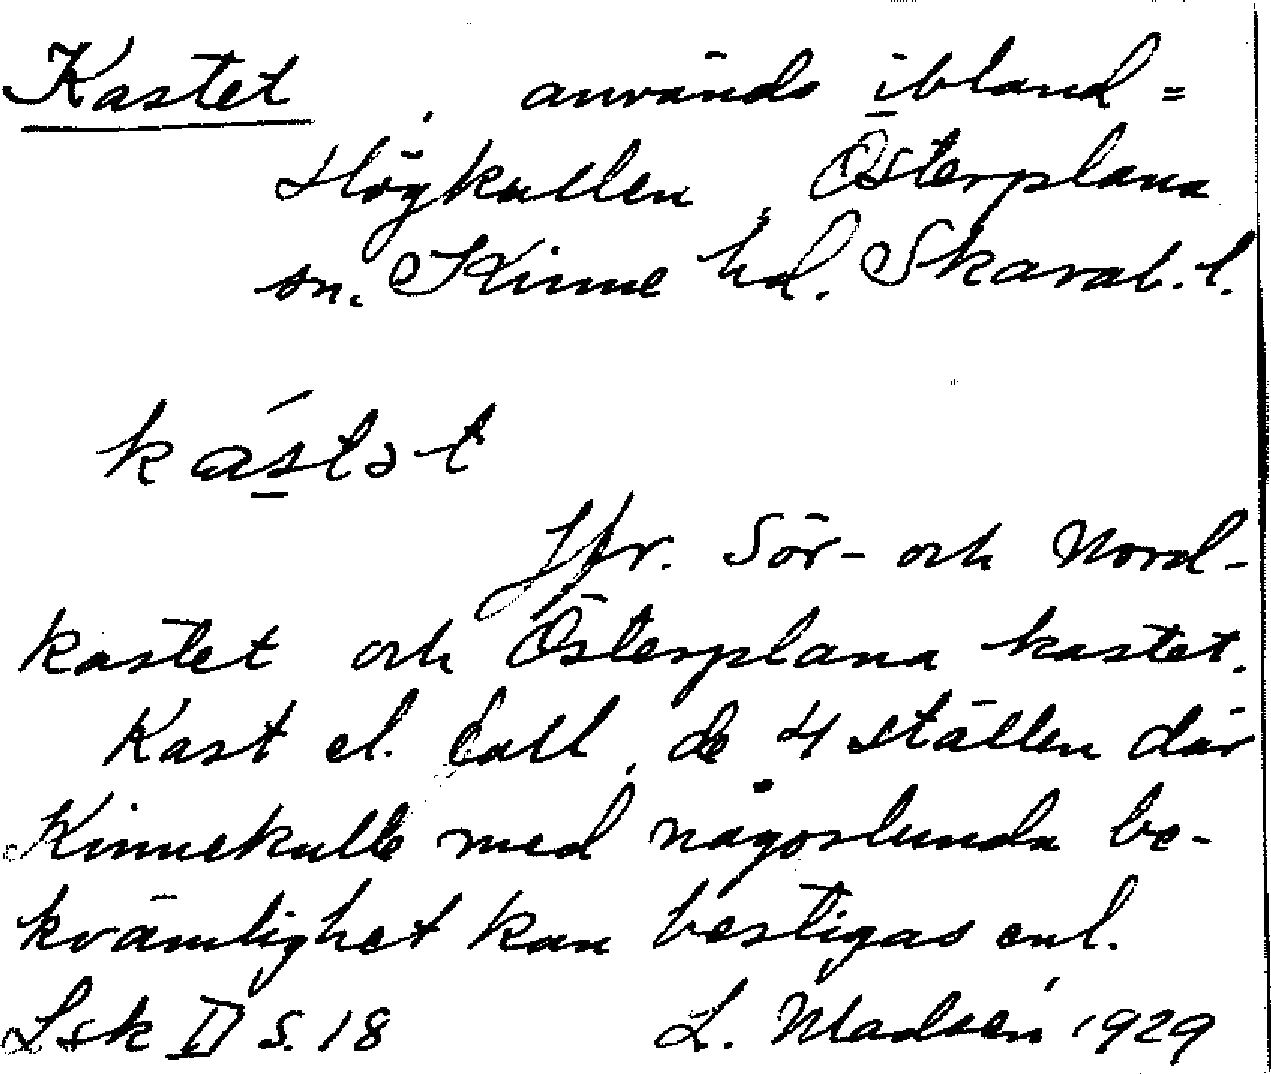 Kastet, används ibland =
Högkullen, Österplana
sn. Kinne hd. Skarab. l.
kástət
Jfr. Sör- och Nord-
kastet och Österplana kastet.
Kast el. Fall, de 4 ställen där
Kinnekulle med någorlunda be-
kvämlighet kan bestigas enl.
Lsk II s. 18 L. Madsén 1929